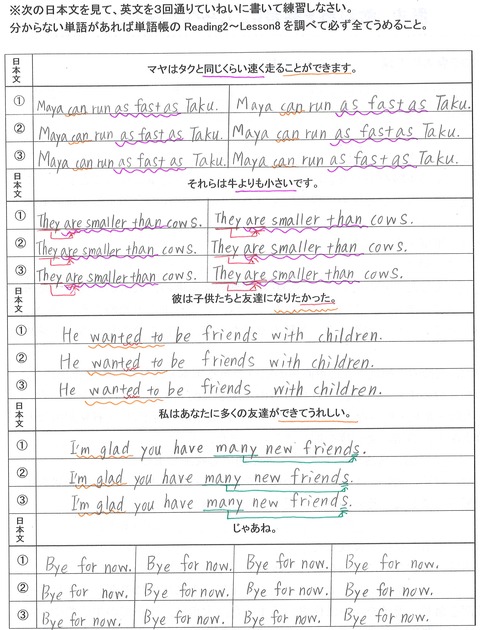 ※次の日本文を見て、英文を３回通りていねいに書いて練習しなさい。
分からない単語があれば単語帳の Reading2～Lesson8 を調べて必ず全てうめること。
日本文 マヤはタクと同じくらい速く走ることができます。
① Maya can run as fast as Taku. Maya can run as fast as Taku.
② Maya can run as fast as Taku. Maya can run as fast as Taku.
③ Maya can run as fast as Taku. Maya can run as fast as Taku.
日本文 それらは牛よりも小さいです。
① They are smaller than cows. They are smaller than cows.
② They are smaller than cows. They are smaller than cows.
③ They are smaller than cows. They are smaller than cows.
日本文 彼は子供たちと友達になりたかった。
① He wanted to be friends with children.
② He wanted to be friends with children.
③ He wanted to be friends with children.
日本文 私はあなたに多くの友達ができてうれしい。
① I'm glad you have many new friends.
② I'm glad you have many new friends.
③ I'm glad you have many new friends.
日本文 じゃあね。
① Bye for now. Bye for now. Bye for now. Bye for now.
② Bye for now. Bye for now. Bye for now. Bye for now.
③ Bye for now. Bye for now. Bye for now. Bye for now.